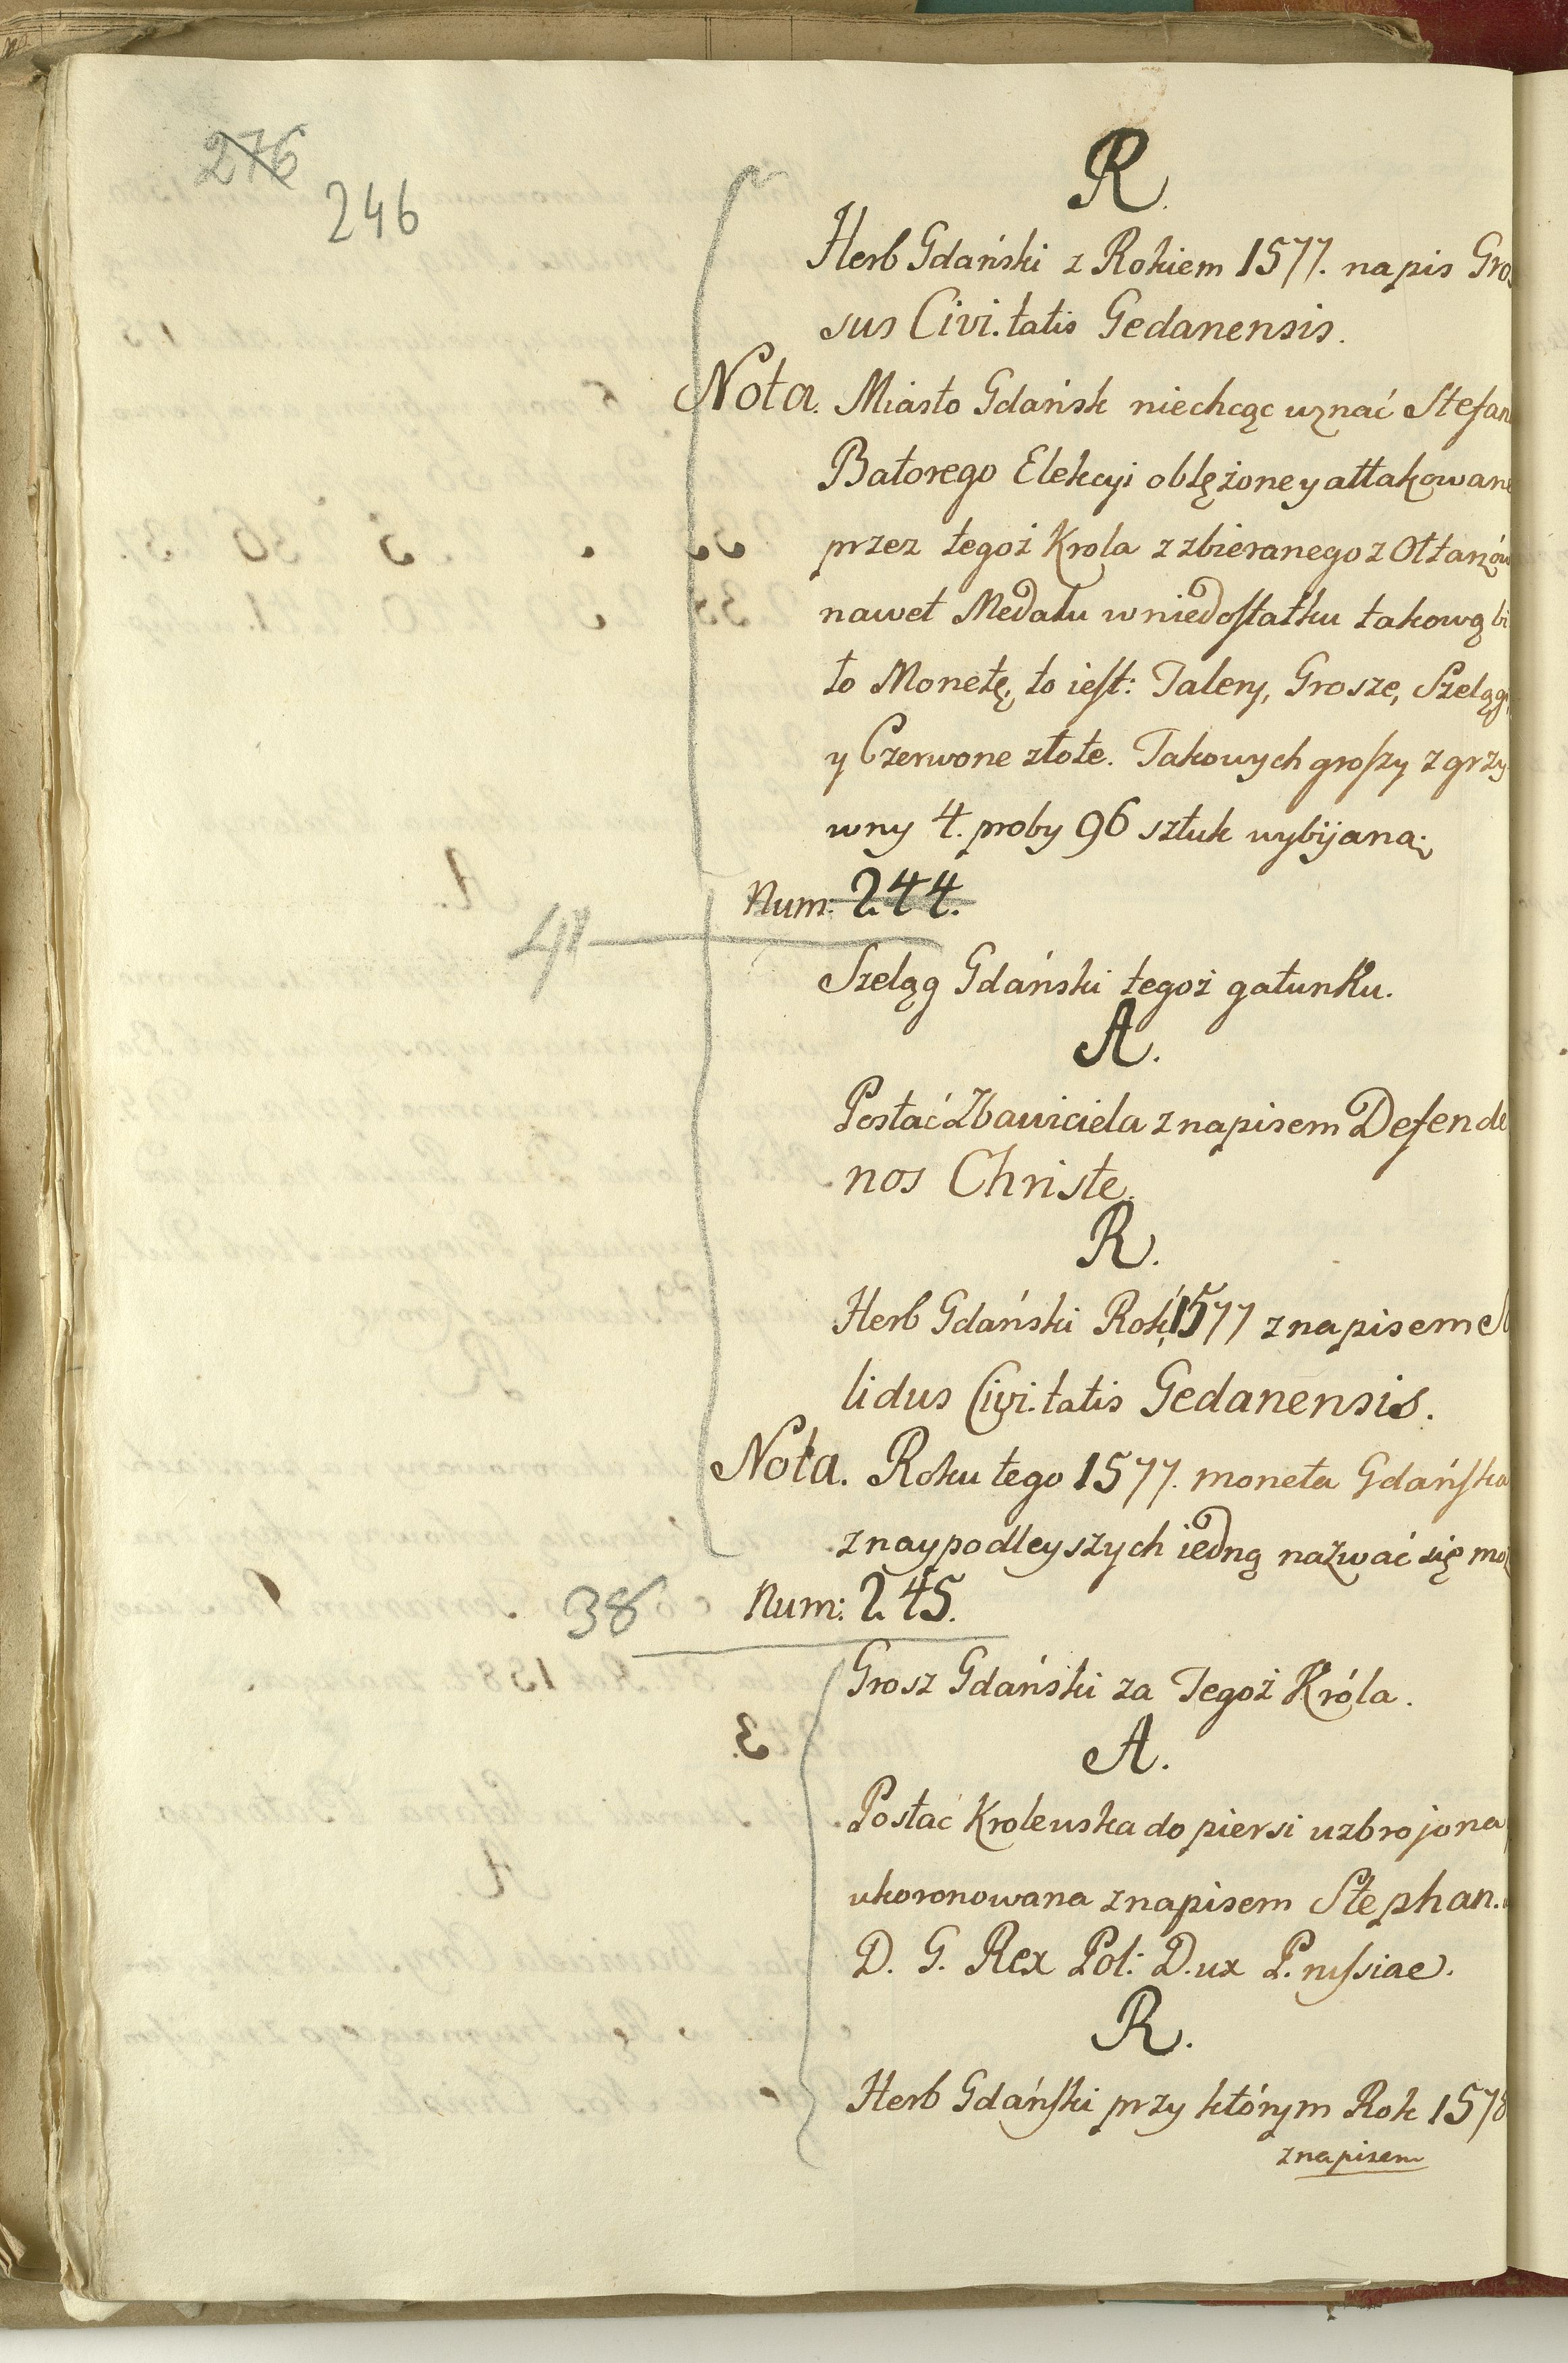 276
246
R.
Herb Gdański z Rokiem 1577. napis Gros
sus Civi.tatis Gedanensis.
Nota. Miasto Gdańsk niechcąc uznać Stefan
Batorego Elekcyi oblężone y attakowane
przez tegoż Krola z zbieranego z Ołtarzów
nawet Medalu w niedostatku takową bi
to Monetę, to iest: Talery, Grosze, Szelągi,
y Czerwone złote. Takowych groszy z grzy
wny 4. proby 96 sztuk wybijaną.
Num: 244.
41
Szeląg Gdański tegoż gatunku.
A.
Postać Zbawiciela z napisem Defende
nos Christe.
R.
Herb Gdański Rok 1577 z napisem
lidus Civi.tatis Gedanensis.
Nota. Roku tego 1577. moneta Gdańska
z naypodleyszych iedną nazwać się moż
38 Num: 245.
Grosz Gdański za Tegoż Króla.
A.
Postać Krolewska do piersi uzbrojona
ukoronowana z napisem Stephan.
D. G. Rex Pol: D.ux P.russiae.
R.
Herb Gdański przy którym Rok 1578
z napisem